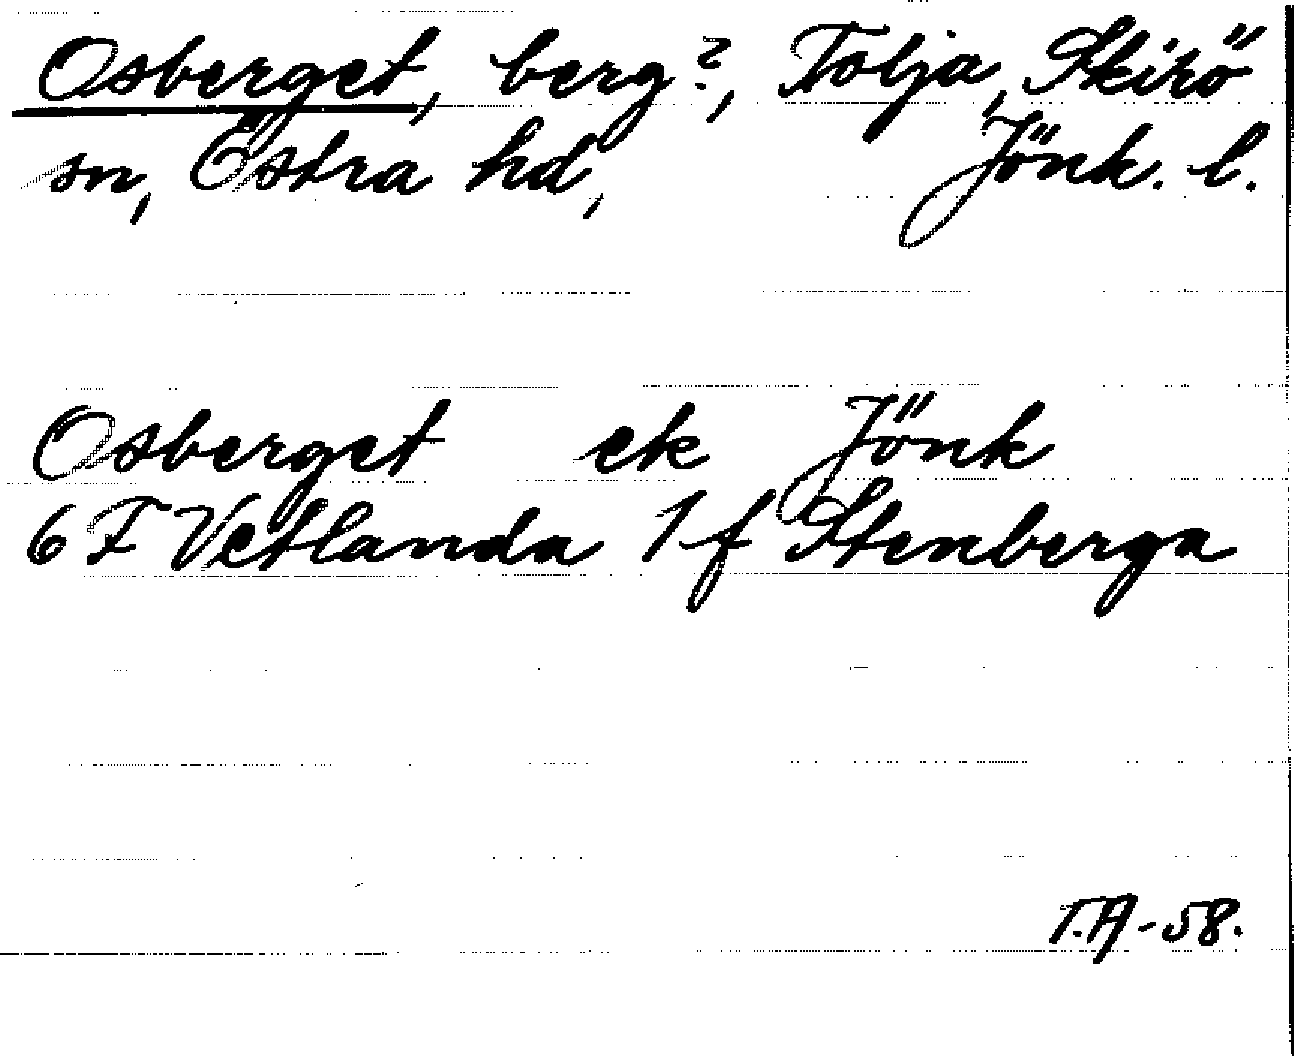 Osberget, berg?, Tolja, Skirö
sn, Östra hd, Jönk. l.
Osberget ek Jönk
6 F Vetlanda 1 f Stenberga
T.A-58.